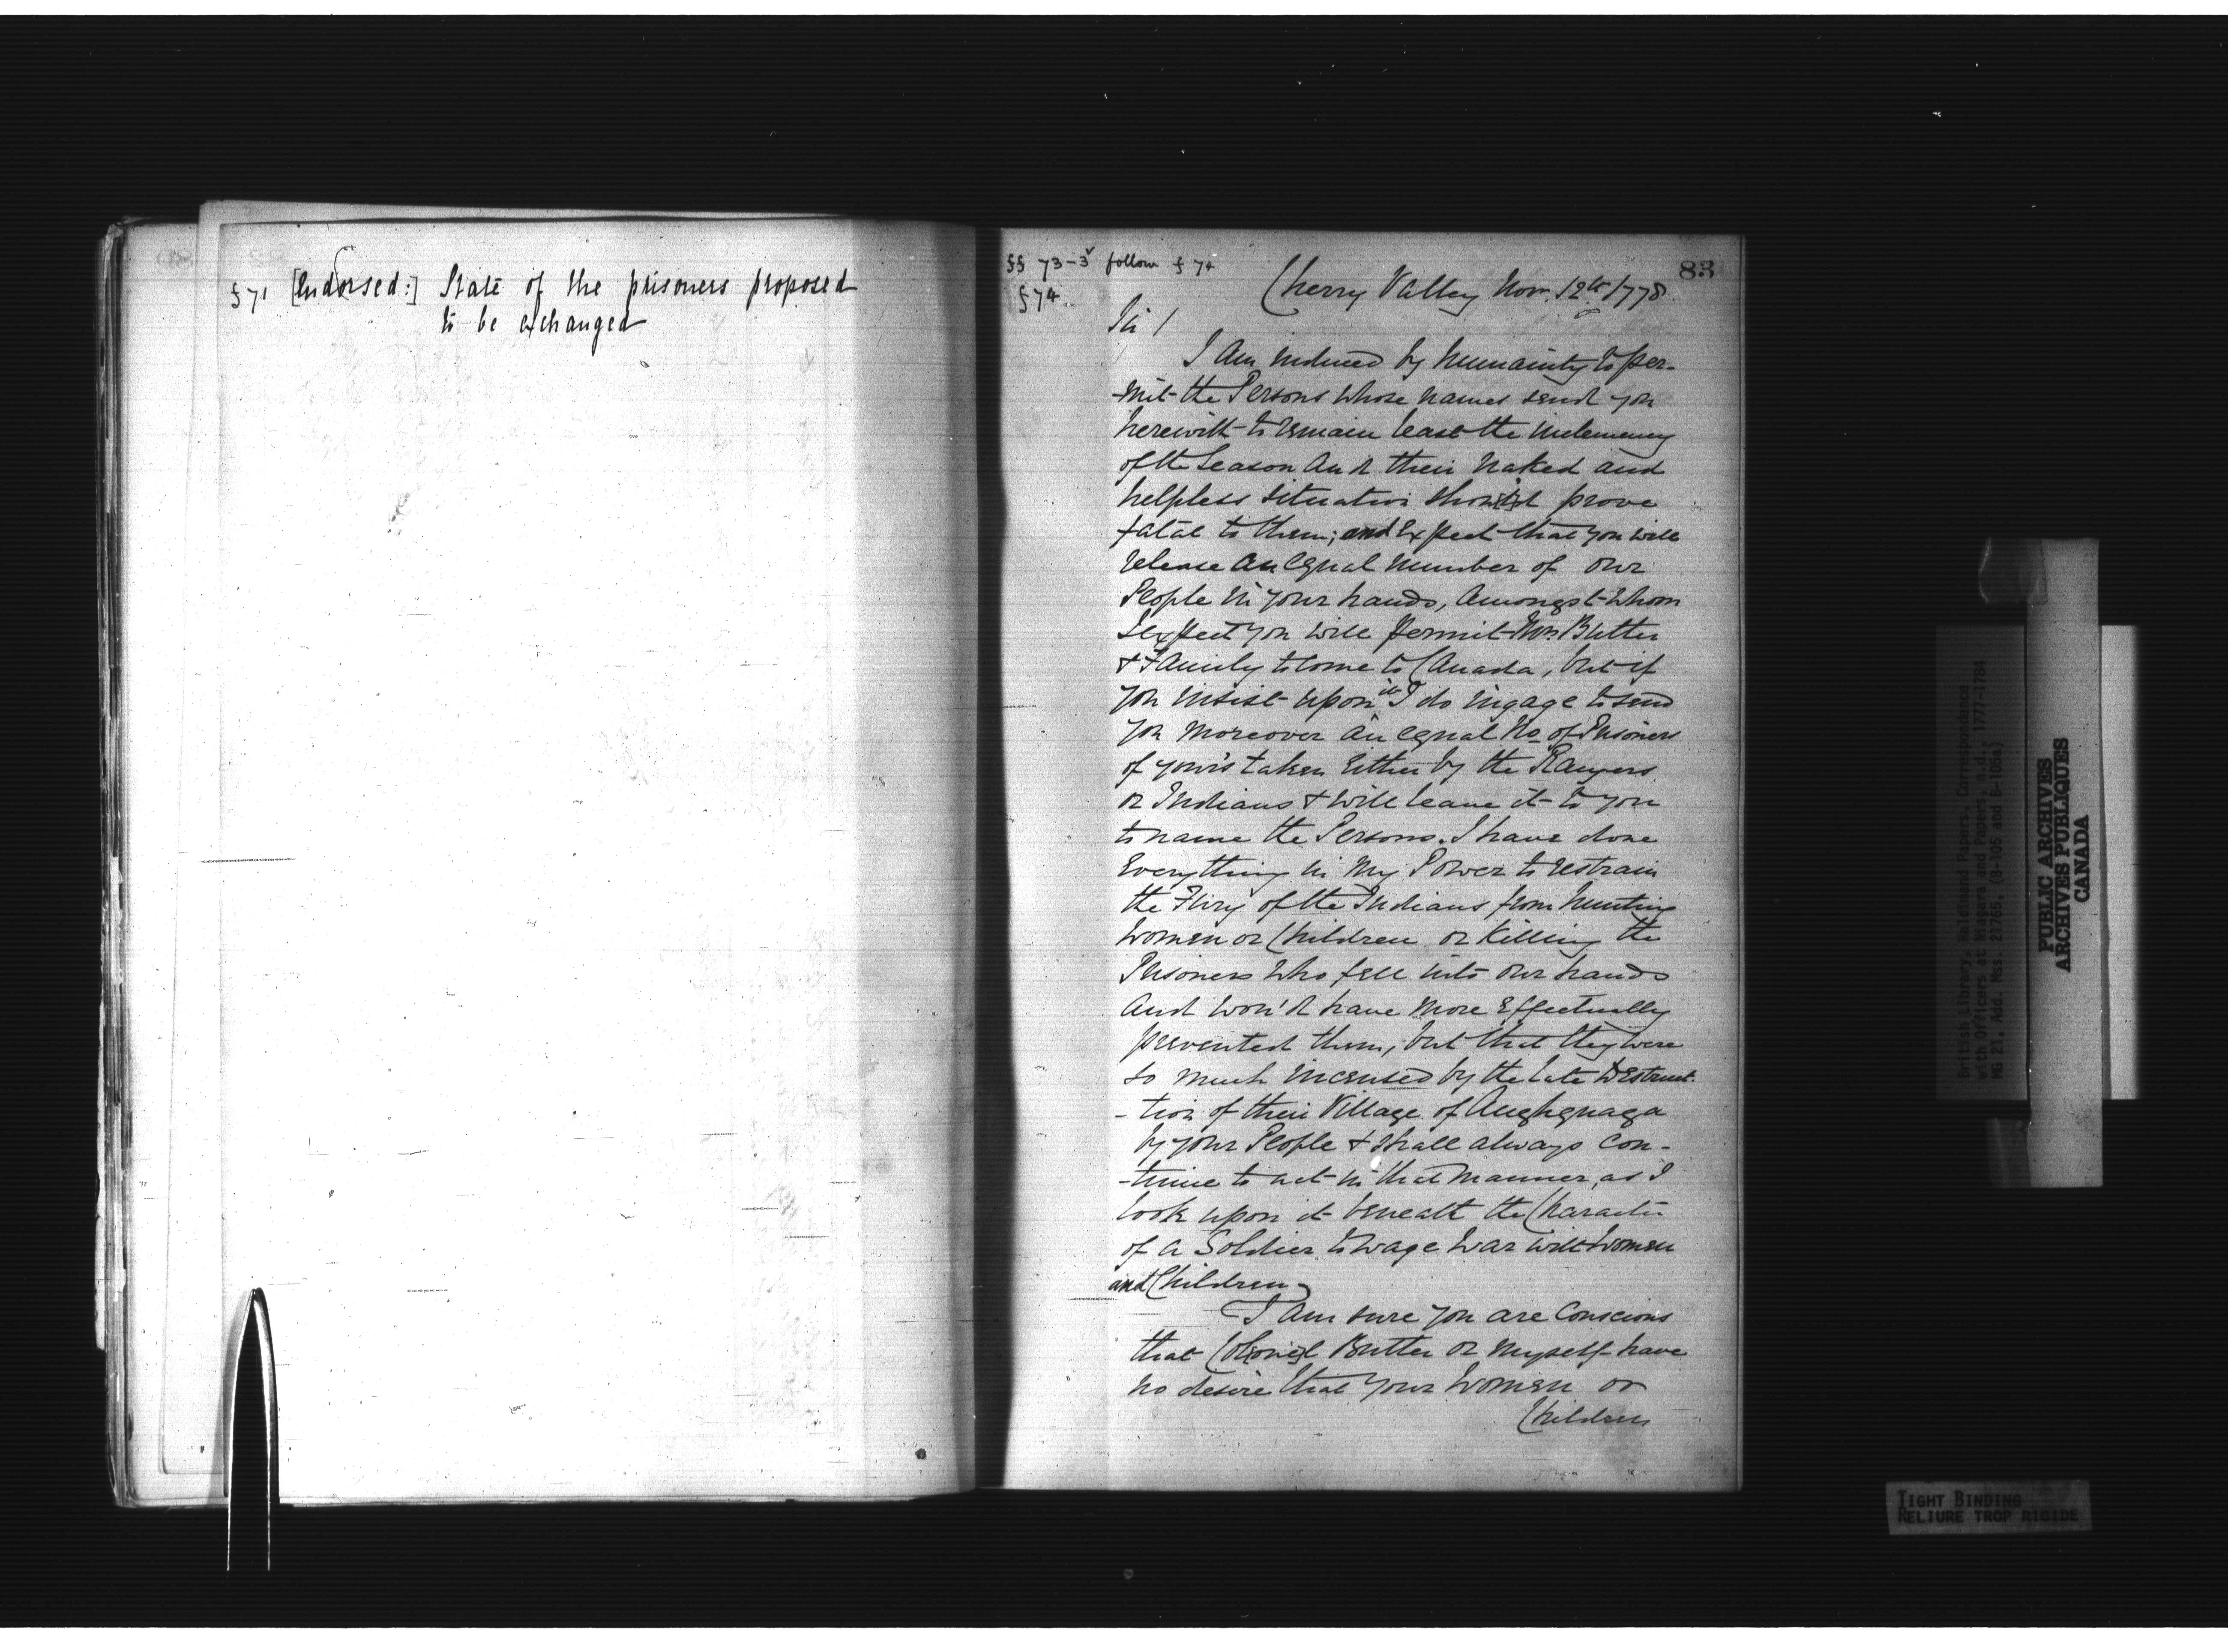 f 71 [Endorsed:] State of the prisoners proposed
to be exchanged
ff 73-3v follow f 74
83
f 74
Cherry Valley Nov. 12th 1778
Sir /
I am induced by humainty to per-
-mit the Persons whose names send you
herewith to remain least the inclemency
of the Season and their naked and
helpless situation shou'd prove
fatal to them; and Expect that you will
release an Equal number of our
People in your hands, amongst whom
I expect you will permit Mrs. Butler
& Family to come to Canada, but if
you insist upon it I do ingage to send
you moreover an equal No. of Prisoners
of your's taken Either by the Rangers
or Indians & will leave it to you
to name the Persons. I have done
Everything in my Power to restrain
the Fury of the Indians from hurting
women or Children or Killing the
Prisoners who fell into our hands
and wou'd have more Effectually
prevented them, but that they were
so much incensed by the late Destruct-
-tion of their Village of Aughguaga
by your People & shall always con-
-tinue to act in that manner, as I
look upon it beneath the Character
of a Soldier to wage War with Women
and Children.
I am sure you are Conscious
that Col[one]l Butler or myself have
no desire that your Women or
Children
British Library, Haldimand Papers, Correspondence
with Officers at Niagara and Papers, n.d., 1777-1784
MG 21, Add. Mss. 21765, (B-105 and B-105a)
PUBLIC ARCHIVES
ARCHIVES PUBLIQUES
CANADA
TIGHT BINDING
RELIURE TROP RIGIDE